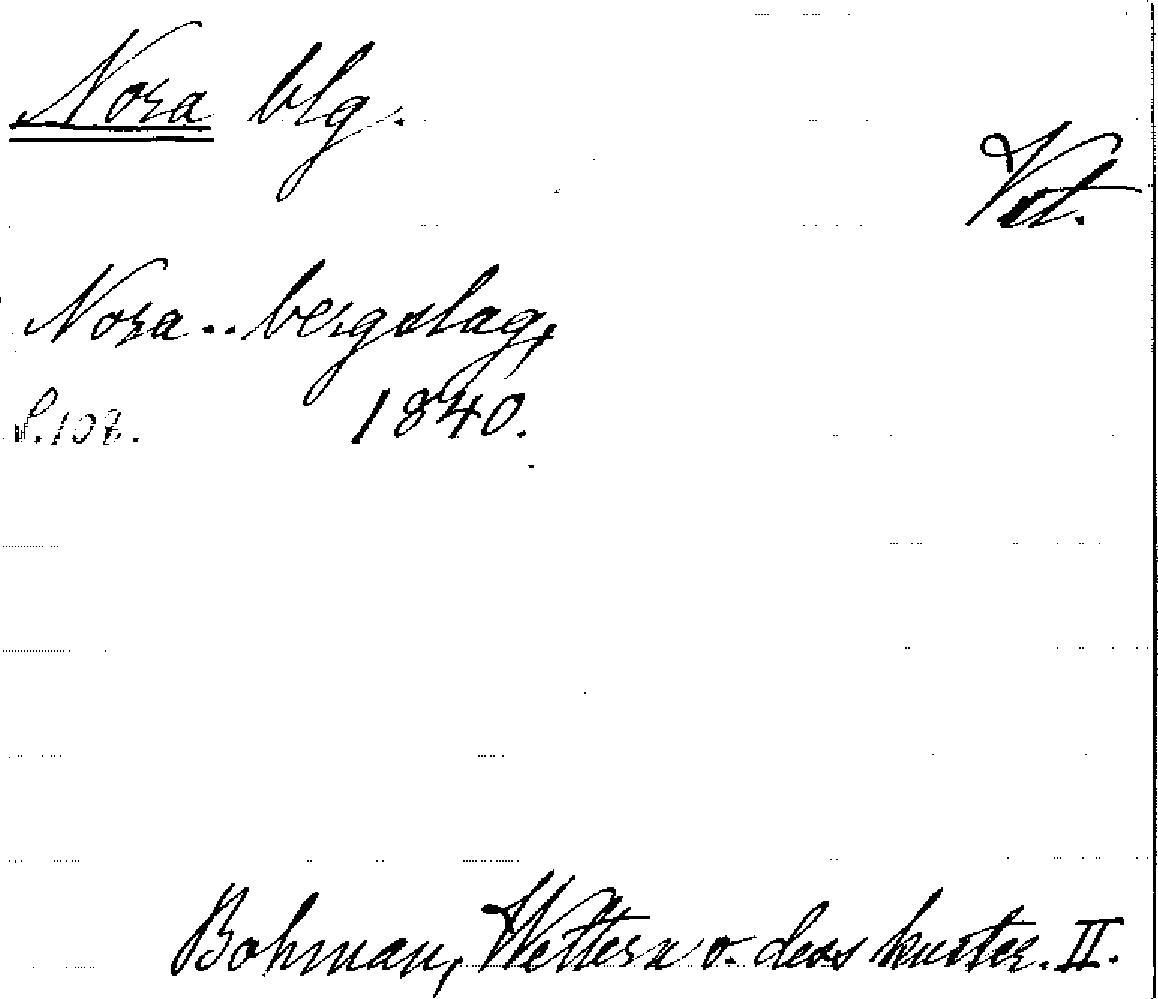 Nora blg.
Vstm.
Nora .. bergslag,
S. 108. 1840.
Bohman, Wettern o. dess kuster. II.